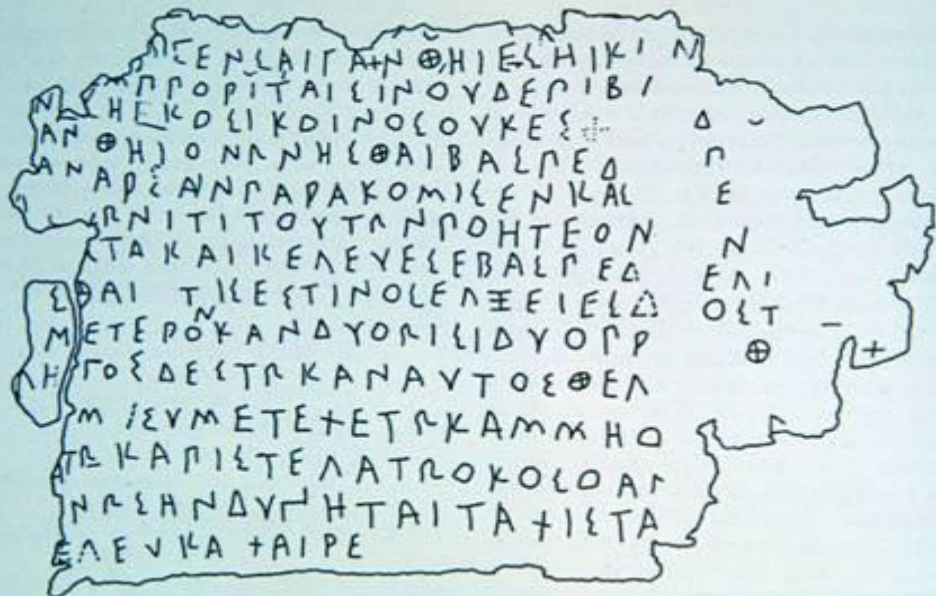 ΓΕΝΣΑΙΓΑΝΘΗΙΕΣΗΙΚΙΝ
ΠΠΟΡΙΤΑΙΣΙΝΟΥΔΕΠΙΒΙ
ΝΗΕΚΟΣΙΚΟΙΝΟΣΟΥΚΕΣ Δ
ΑΝΘΗΙΟΝΩΝΗΣΘΑΙΒΑΣΠΕΔ Ω
ΑΝΑΡΣΑΝΠΑΡΑΚΟΜΙΣΕΝΚΑΣ Ε
ΩΝΙΤΙΤΟΥΤΩΝΠΟΗΤΕΟΝ Ν
ΤΑΚΑΙΚΕΛΕΥΕΣΕΒΑΣΠΕΔ ΕΛΙ
ΣΘΑΙ ΤΙΣΕΣΤΙΝΟΣΕΛΞΕΙΕΣΔ ΟΣΤ
ΜΕΤΕΡΟΚΑΝΔΥΟΩΙΣΙΔΥΟΠΡ Θ Χ
ΛΗΓΟΣΔΕΣΤΩΚΑΝΑΥΤΟΣΘΕΛ
ΜΙΣΥΜΕΤΕΧΕΤΩΚΑΜΜΗΟ
ΑΤΩΚΑΠΙΣΤΕΛΑΤΩΟΚΟΣΟΑΓ
ΝΩΣΗΝΔΥΝΗΤΑΙΤΑΧΙΣΤΑ
ΕΛΕΥΚΑΧΑΙΡΕ